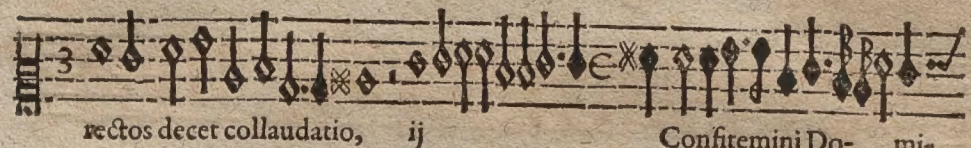 3
rectos decet collaudatio, ij Confitemini Do- mi-